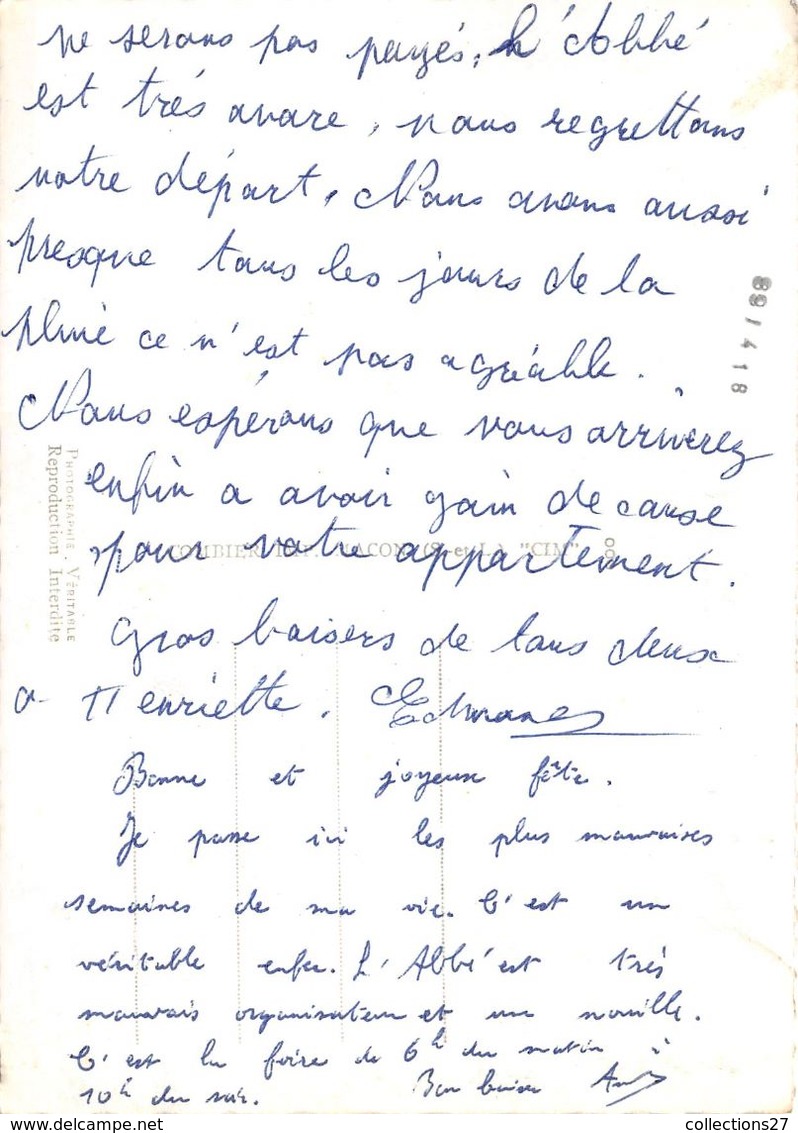 ne serons pas payés, L'Abbé
est trés avare, nous regrettons
notre départ. Nous avons aussi
presque tous les jours de la
pluie ce n'est pas agréable.
Nous espérons que vous arriverez
enfin a avoir gain de cause
pour votre appartement.
Gros baisers de tous deux
a Henriette.
Bonne et joyeuse fête.
Je passe ici les plus mauvaises
semaines de ma vie. C'est un
véritable enfer. L'Abbé est très
mauvais organisateur et un nouille.
C'est la foire de 6h du matin à
10h du soir. Bon baiser
PHOTOGRAPHIE VÉRITABLE
Reproduction Interdite
COMBIER IMP. MACON (S-et-L) "CIM"
89/418
collections27